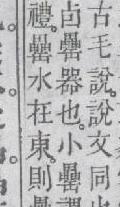 古毛說。說文同
卣罍器也。小罍謂
禮。罍水在東。則